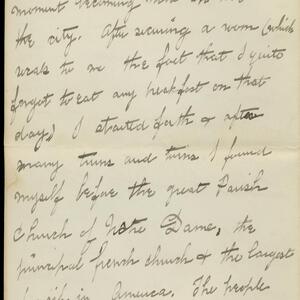 moment becoming
the city. After securing a room (which
to me the fact that I quite
forgot to eat any breakfast on that
day) I started forth & after
many turns and turns I found
myself before the great Parish
Church of Notre Dame, the
principal french church & the largest
in America. The people